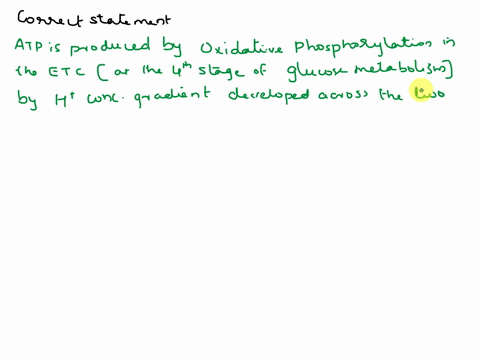 Correct statement
ATP is produced by Oxidative Phosphorylation in
the ETC [or the 4th stage of glucose metabolism]
by H+ conc. gradient developed across the two